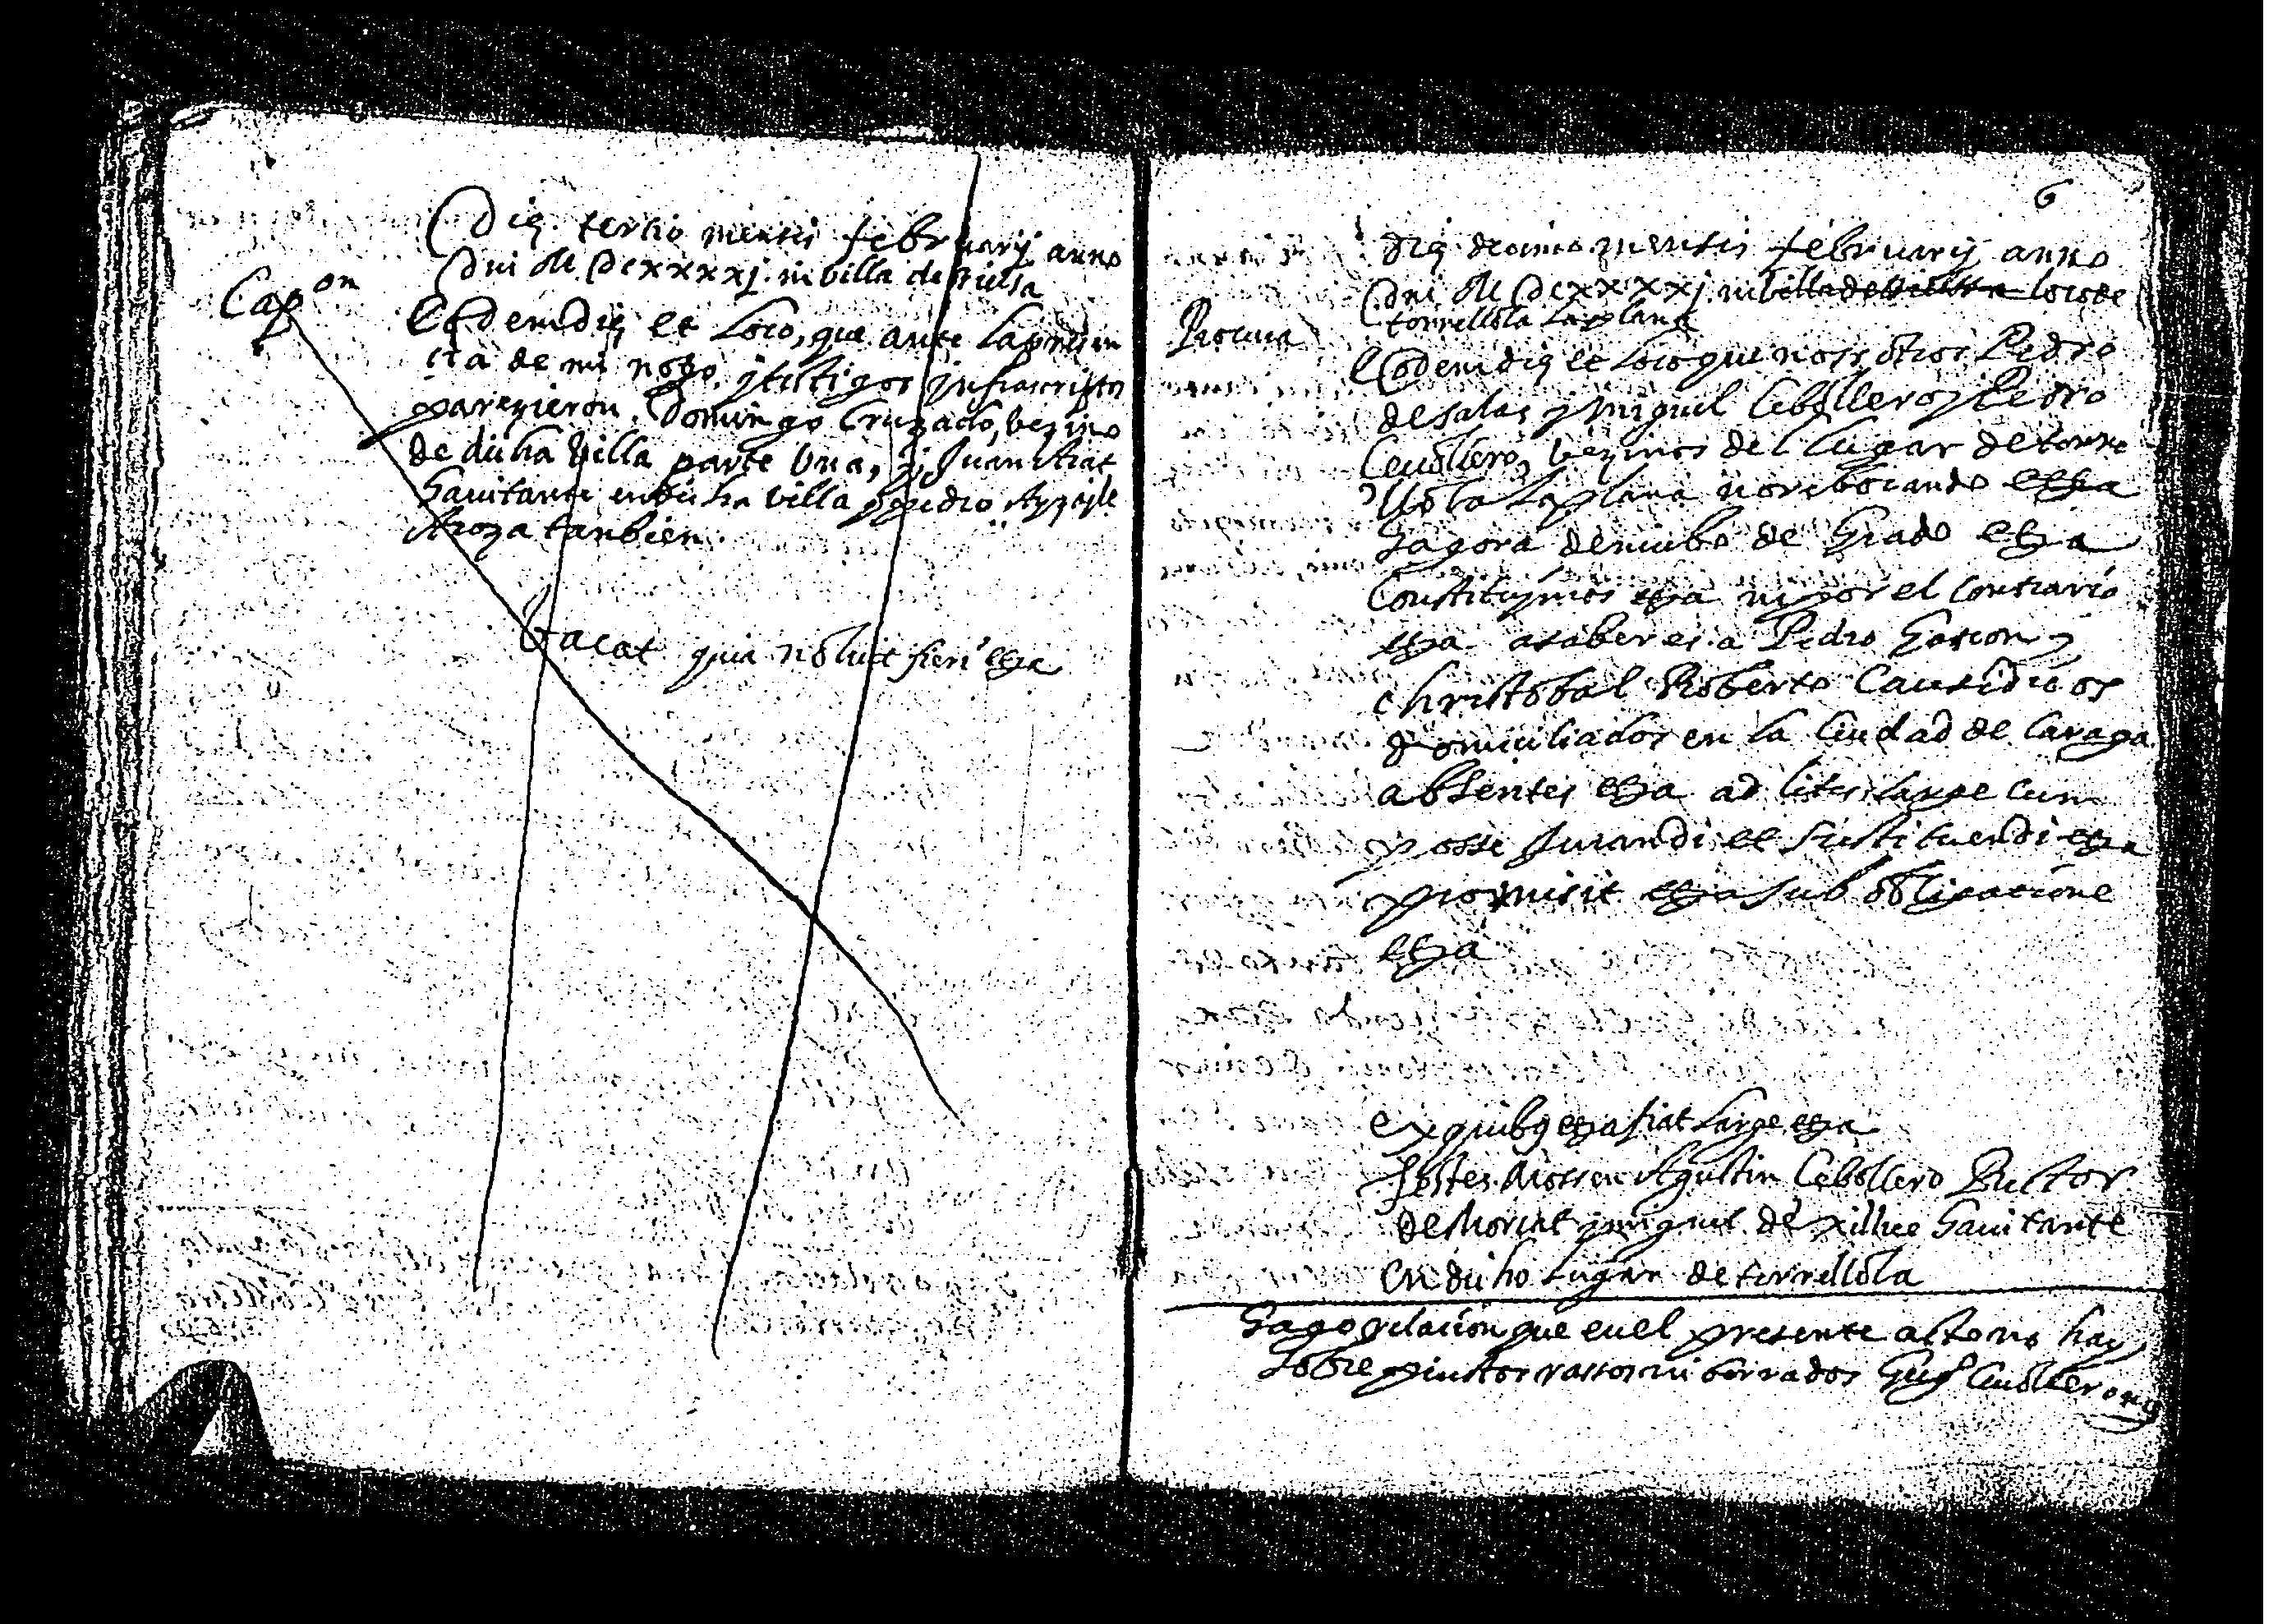 Die tertio mensis februarij anno
Dni M DCxxxxj in villa de Bielsa
Capon
Eodem die et Loco, que ante la presen
cia de mi noto y testigos infrascriptos
parezieron Domingo Cruzado, bezino
de dicha billa parte Una, y Juan
hauitante en dicha villa
tanbien.
Vacat quia noluit fieri etza
6
Die decimo mensis februarij anno
Dni M DCxxxxj in billa de bielsa loco de
torrellola La plana
Procura
Eodem die et Loco que nosotros Pedro
de salas y miguel Cebollero y Pedro
Ceuollero, bezinos del Lugar de torre
llola La plana no rebocando etza
hagora de nuebo de Grado etza
Constituymos etza ni por el contrario
etza a saber es a Pedro Gascon y
christobal Roberto Causidicos
domiciliados en la Ciudad de Caragoa
absentes etza ad lites Large cum
posse Jurandi et sustituendi etza
promisit etza sub obligacione
etza
ex quibus etza fiat Large etza
testes Mossen Agustin Cebollero Rector
de Morcat y miguel de xillue hauitante
en dicho Lugar de torrellola
hago relacion que en el presente acto no hay
sobre puestos rassos ni borrados Ceuollero noto